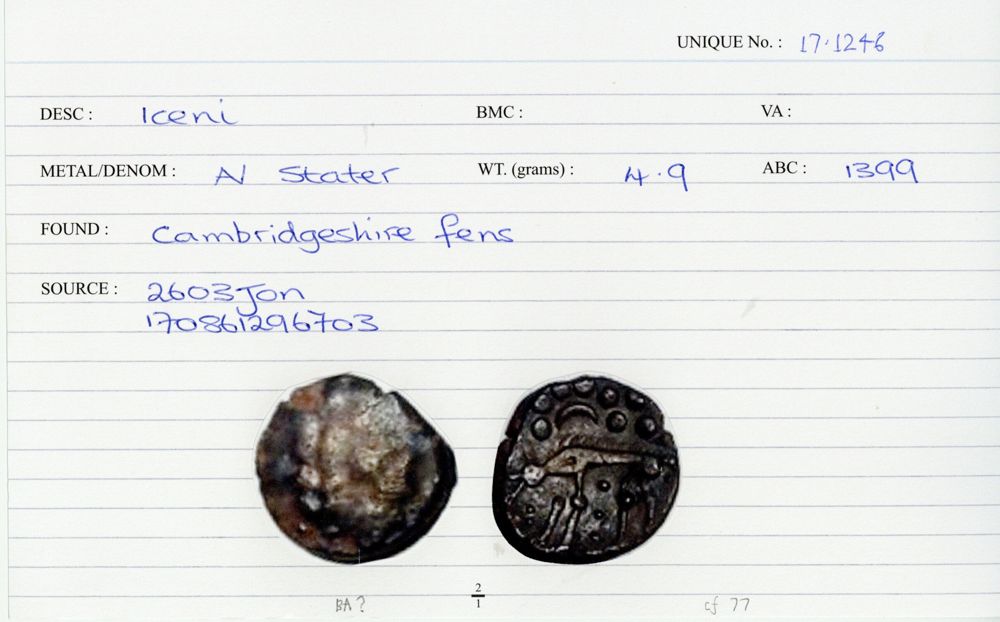 UNIQUE No. : 17.1246
DESC : Iceni BMC : VA :
METAL/DENOM : N Stater WT. (grams) : 4.9 ABC : 1399
FOUND : Cambridgeshire fens
SOURCE : 2603Jon
170861296703
2
1
BA? cf 77